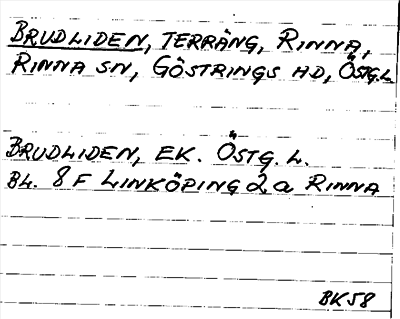 BRUDLIDEN, TERRÄNG, RINNA,
RINNA SN, GÖSTRINGS HD, ÖSTG.L
BRUDLIDEN, EK. ÖSTG. L.
BL. 8 F LINKÖPING 2a RINNA
BK58